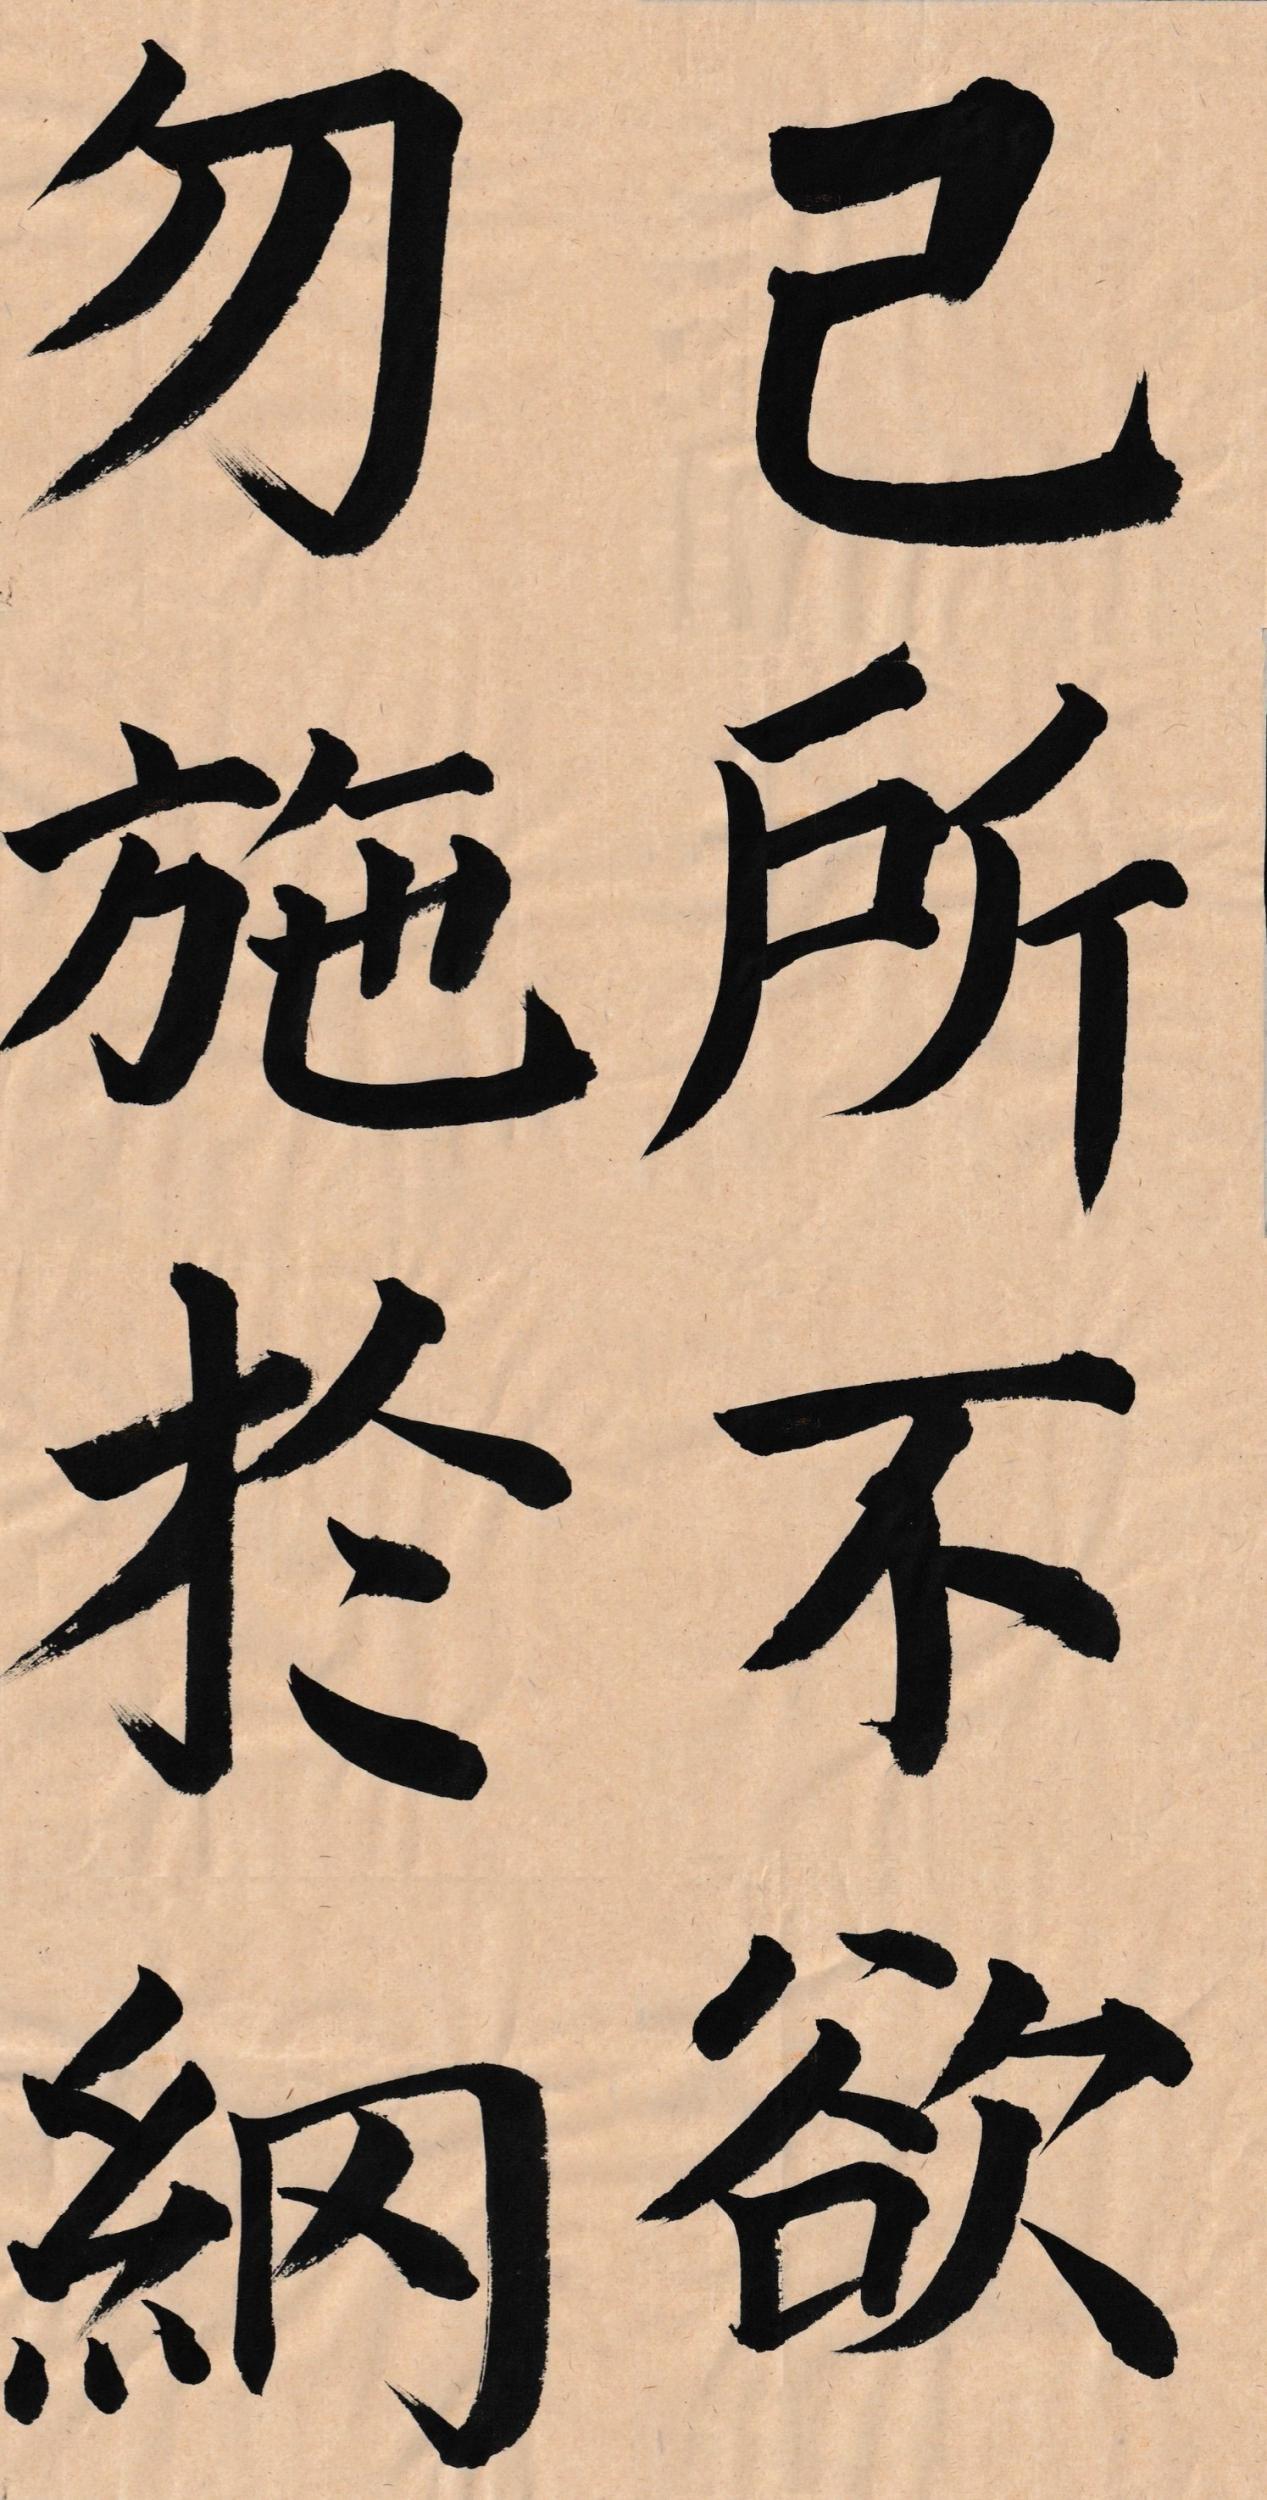 己所不欲
勿施於䋄